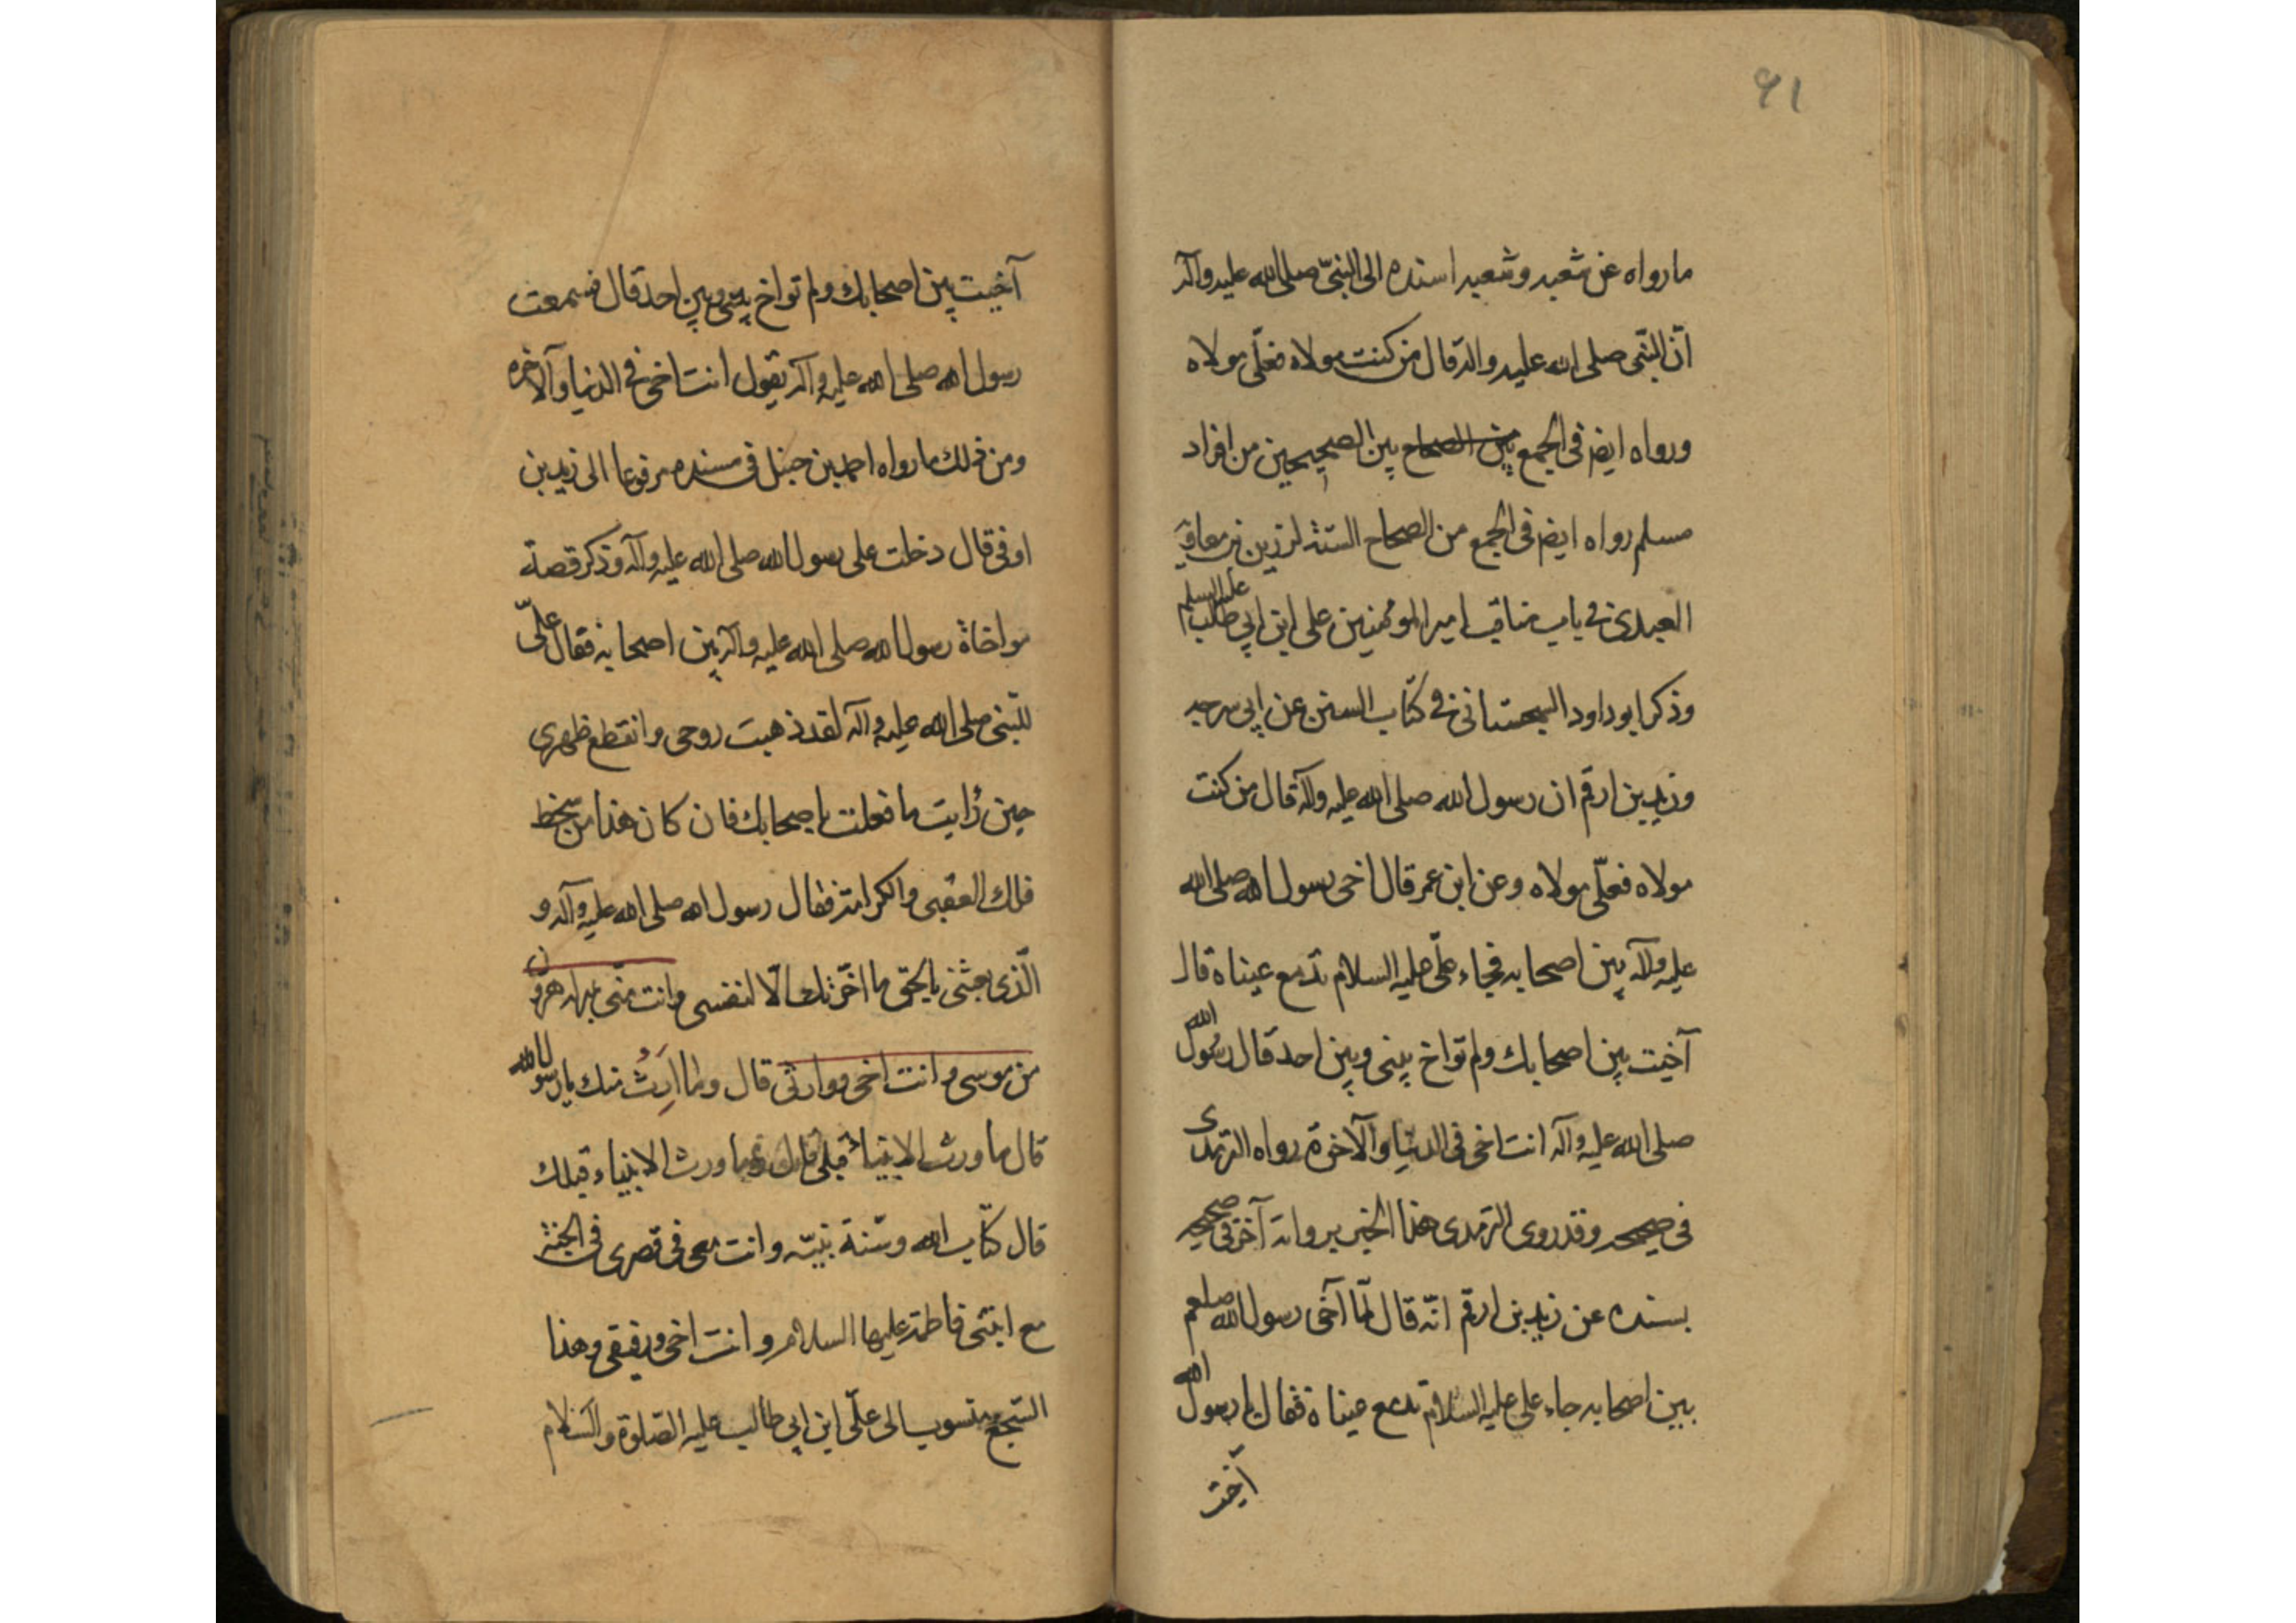 ٩١
ما رواه عن شعبه وشعبه اسنده الى النبىّ صلى الله عليه وآله
انّ النبّى صلى الله عليه واله قال من كنت مولاه فعلّى مولاه
ورواه ايضر فى الجمع بين الصحاح بين الصحيحين من افراد
مسلم رواه ايضر فى الجمع من الصحاح الستة لرزين بن معاوية
العبدرى فى باب مناقب امير المومنين على ابن ابي طالب عليه السلم
وذكر ابو داود السجستانى فى كتاب السنن عن ابي سرحيه
وزيد بن ارقم ان رسول الله صلى الله عليه وآله قال من كنت
مولاه فعلّى مولاه وعن ابن عمر قال اخى رسول الله صلى الله
عليه وآله بين اصحابه فجاء علّى عليه السلام تدمع عيناه قال
آخيت بين اصحابك ولم تواخ بينى وبين احد قال رسول الله
صلى الله عليه وآله انت اخى فى الدنيا والآخرة رواه الترمدى
فى صحيحه وقد روى الترمدى هذا الخبر برواية آخر فى صحيحه
بسنده عن زيد بن ارقم انّه قال لمّا آخى رسول الله صلعم
بين اصحابه جاء على عليه السلام تدمع عيناه فقال يا رسول الله
آخيت
آخيت بين اصحابك ولم تواخ بينى وبين احد قال فسمعت
رسول الله صلى الله عليه وآله يقول انت اخى فى الدنيا والآخره
ومن ذلك ما رواه احمد بن حنبل فى مسنده مرفوعا الى زيد بن
اوفى قال دخلت على رسول الله صلى الله عليه وآله وذكر قصة
مواخاة رسول الله صلى الله عليه وآله بين اصحابه فقال علّى
للنبّى صلى الله عليه وآله لقد ذهبت روحى وانقطع ظهرى
حين رايت ما فعلت باصحابك فان كان هذا من سخط
فلك العقبى والكرامة فقال رسول الله صلى الله عليه وآله و
الّذى بعثنى بالحق ما اخّرتك الّا لنفسى وانت منّى بمنزلة هرون
من موسى وانت اخى ووارثى قال وما ارث منك يا رسول الله
قال ما ورث الانبياء قبلى قال وما ورث الانبياء قبلك
قال كتاب الله وسنة نبيّه وانت معى فى قصرى فى الجنة
مع ابنتى فاطمة عليها السلام وانت اخى ورفيقى وهذا
السّجع منسوب الى علّى ابن ابي طالب عليه الصلوة والسلام